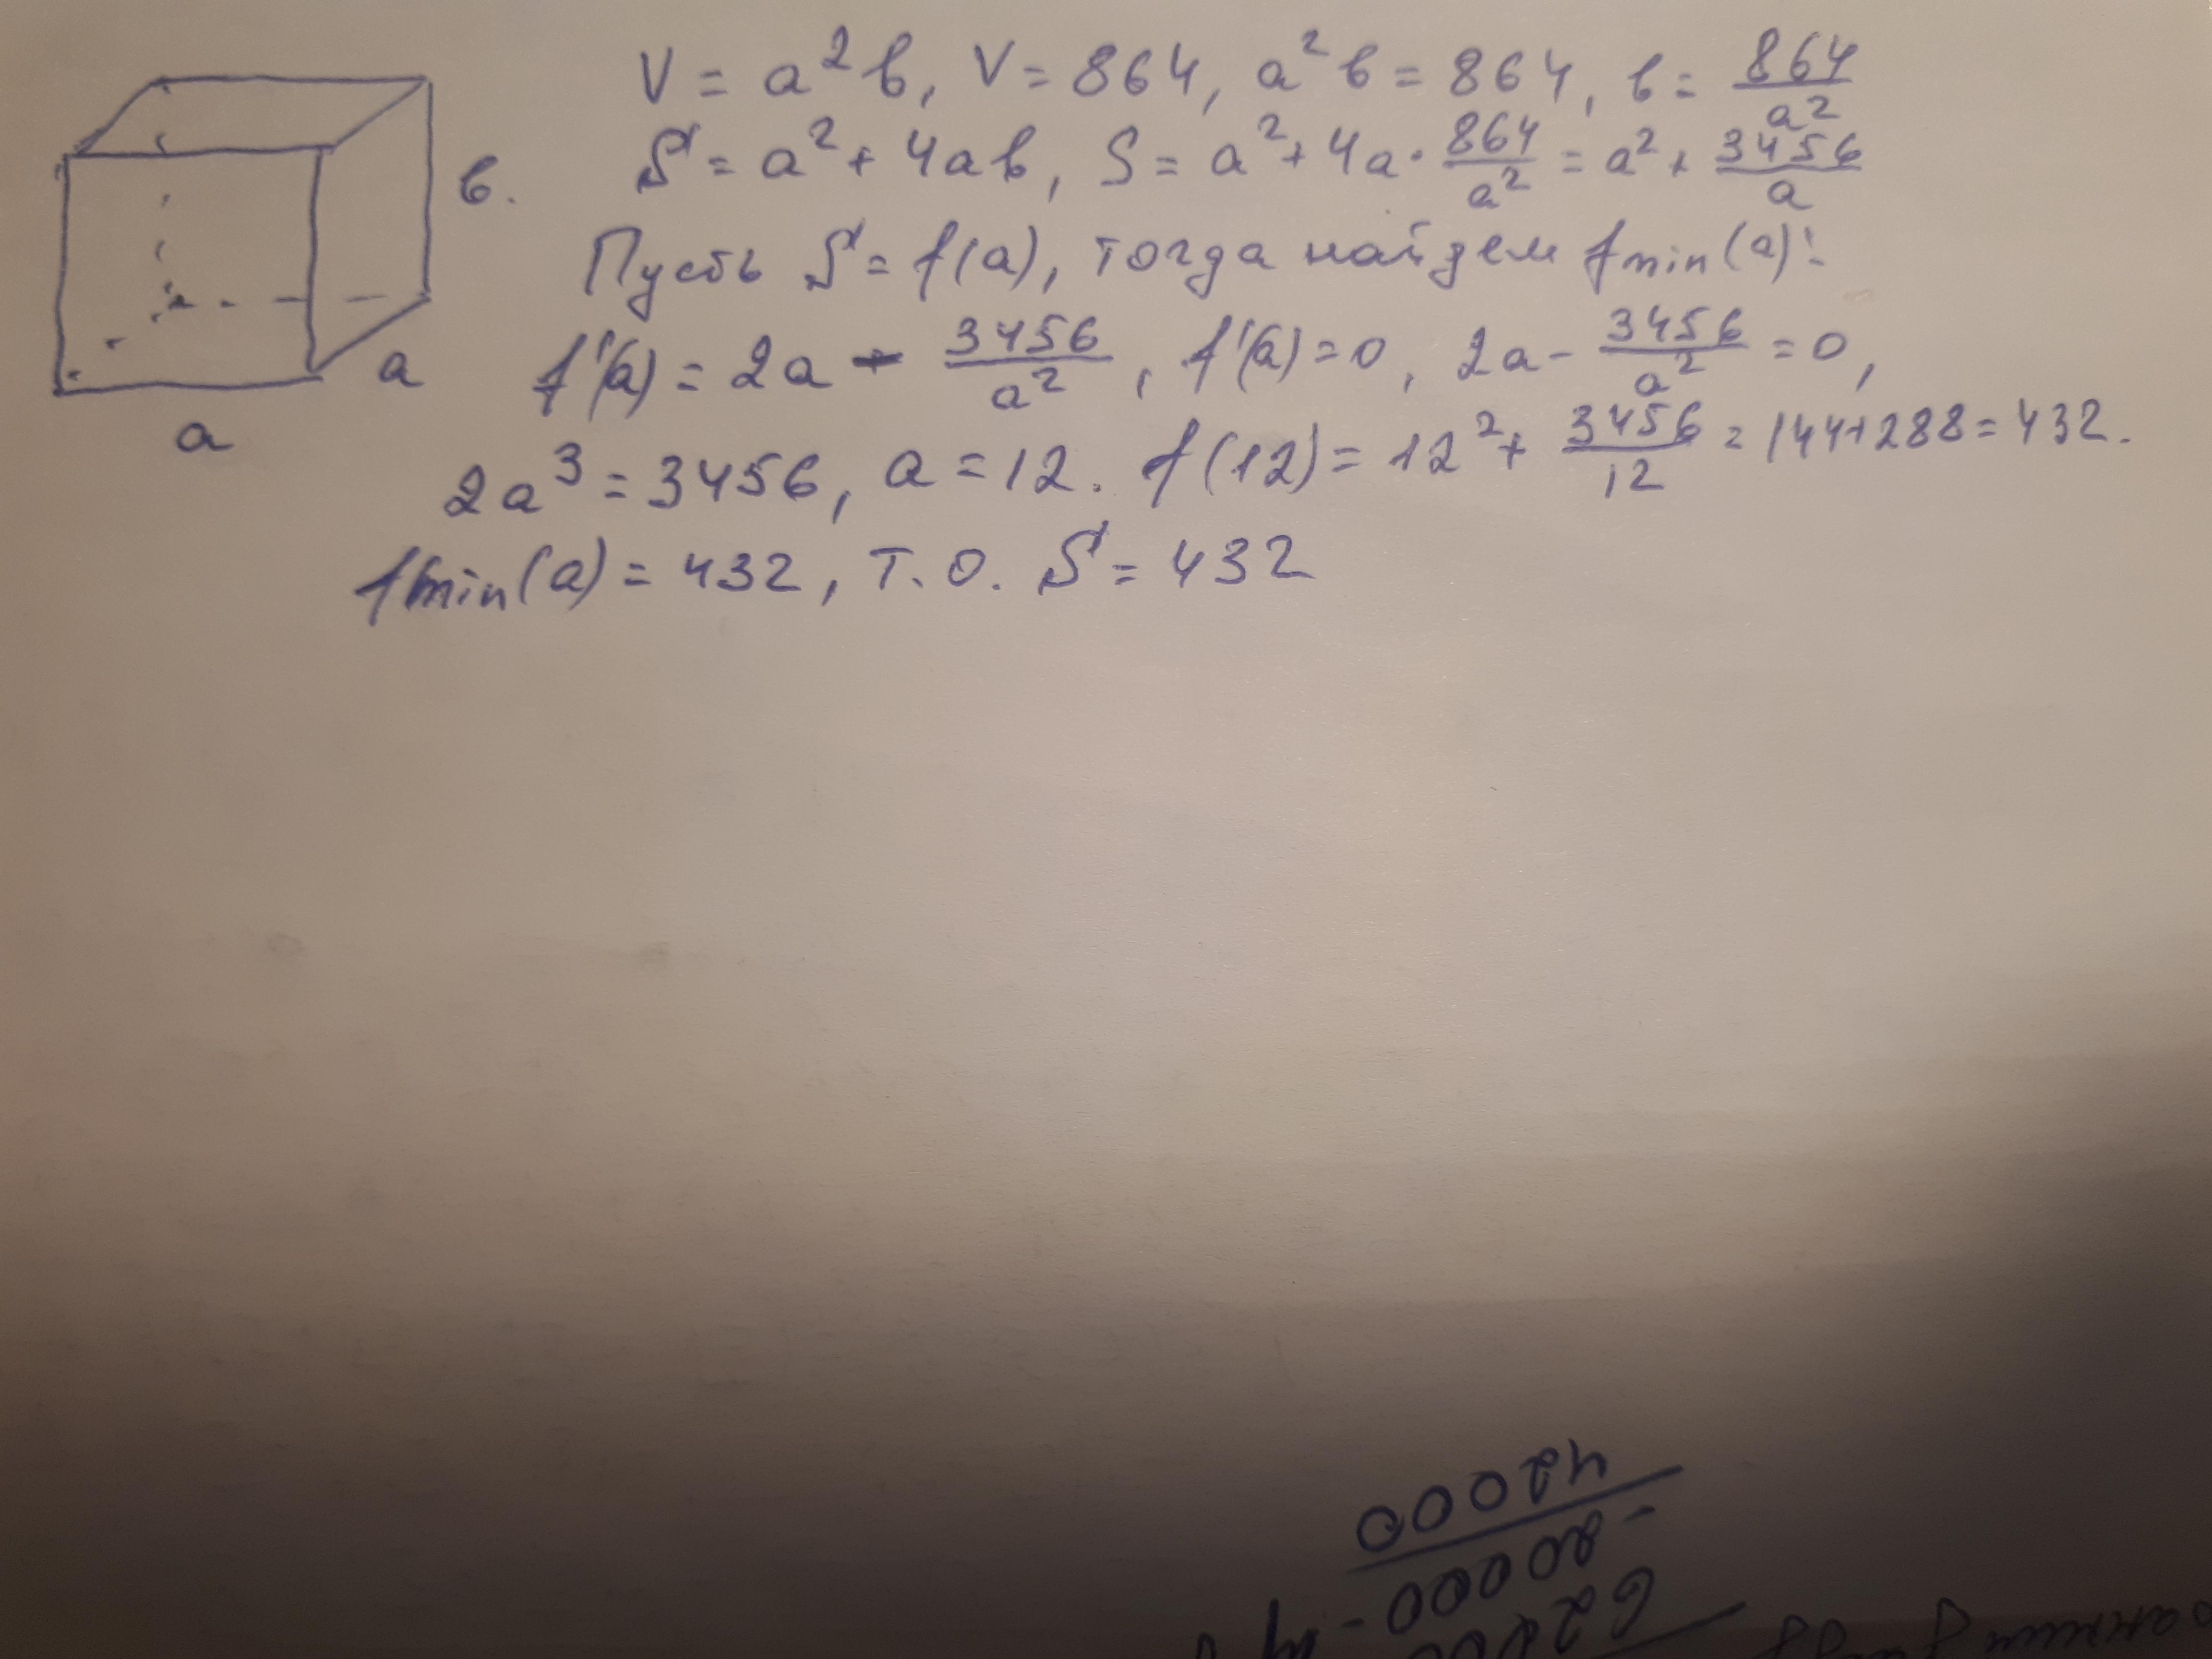 V = a²b, V = 864, a²b = 864, b = 864/a²
S = a² + 4ab, S = a² + 4a · 864/a² = a² + 3456/a
b.
Пусть S = f(a), тогда найдем fmin(a):
f'(a) = 2a - 3456/a², f'(a) = 0, 2a - 3456/a² = 0,
a
a
2a³ = 3456, a = 12. f(12) = 12² + 3456/12 = 144+288 = 432.
fmin(a) = 432, т.о. S = 432
-80000
42000